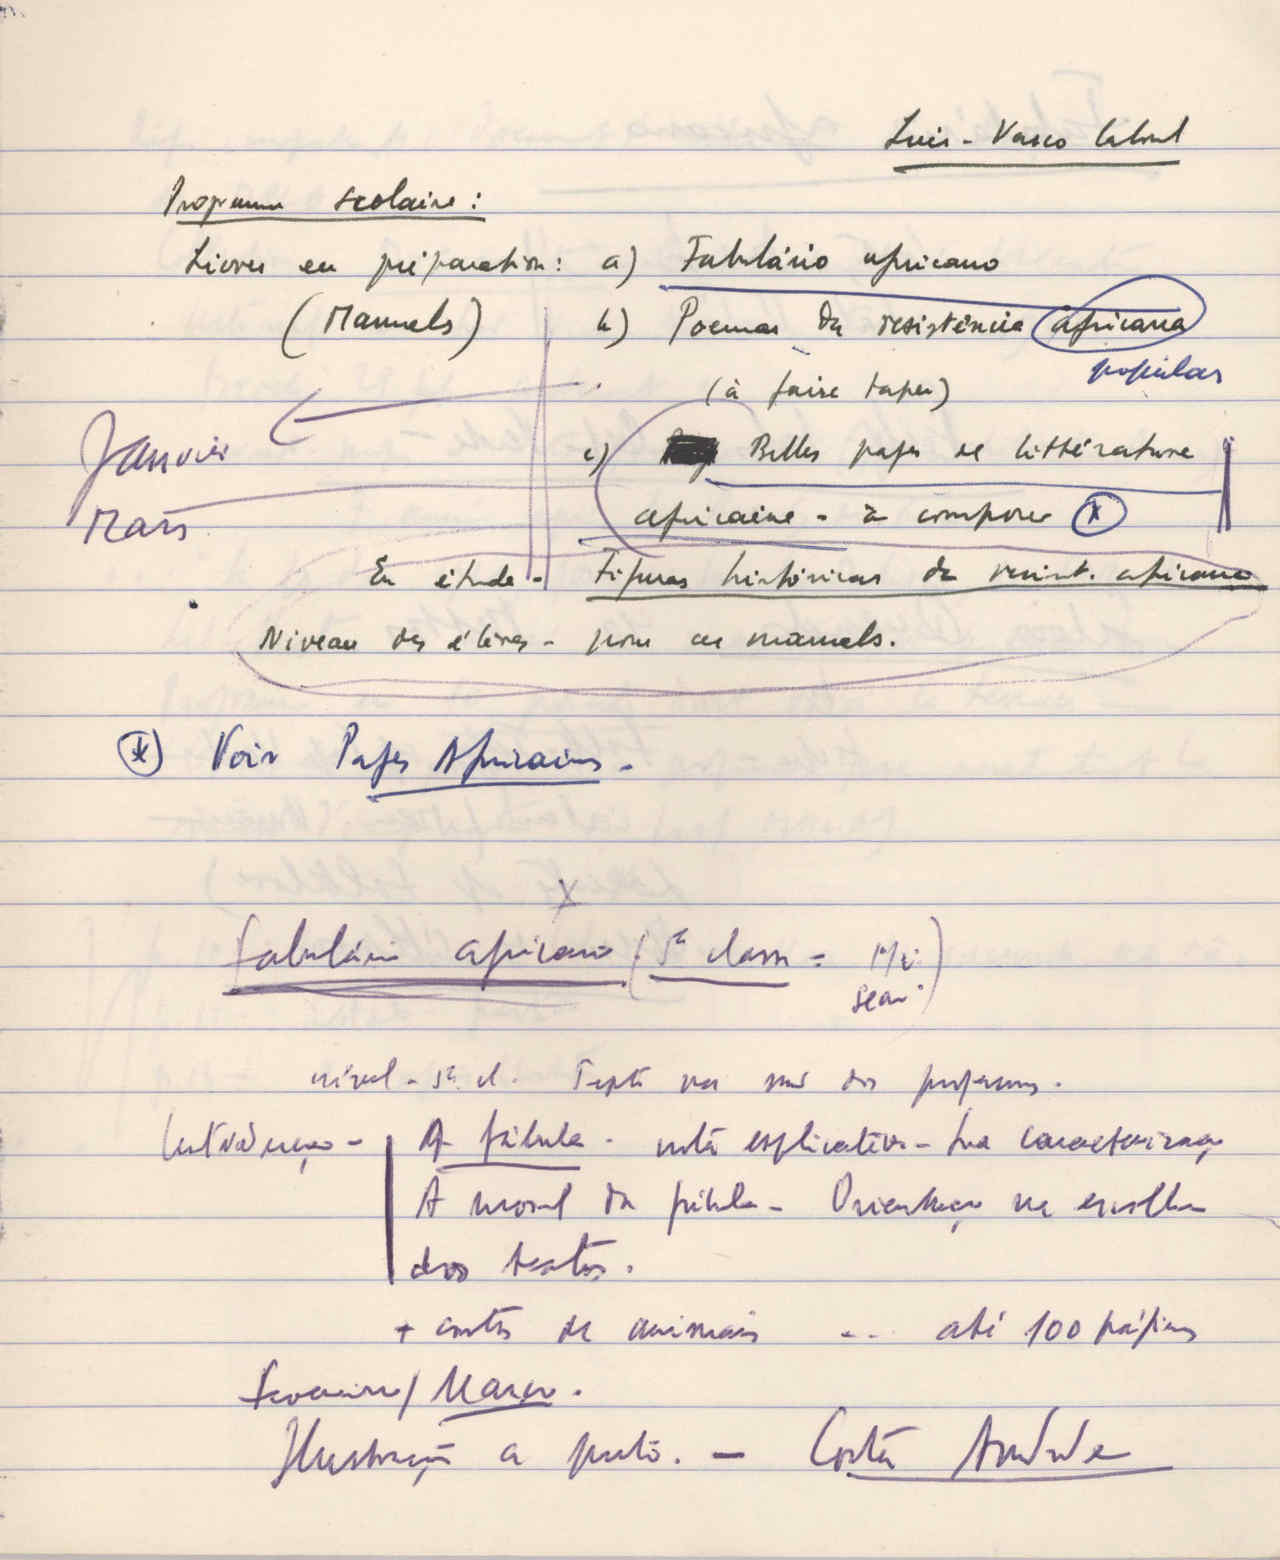 Luis - Vasco Cabral
Programme scolaire :
Livres en préparation : a) Fabulário africano
(Manuels) b) Poemas da resistência africana
popular
(à faire taper)
Janvier
c) Belles pages de littérature
Mars
africaine - à composer (x)
En étude - Figuras históricas da resist. africana
Niveau des élèves - pour ces manuels.
(x) Voir Pages Africaines -
X
Fabulário africano (5ª classe =
nível - 5ª cl. Texto na mão dos professores.
Introdução - A fábula - nota explicativa - sua caracterização
A moral da fábula - Orientação na escolha
dos textos.
+ contos de animais ... até 100 páginas
Fevereiro / Março.
Ilustração a preto. - Costa Andrade